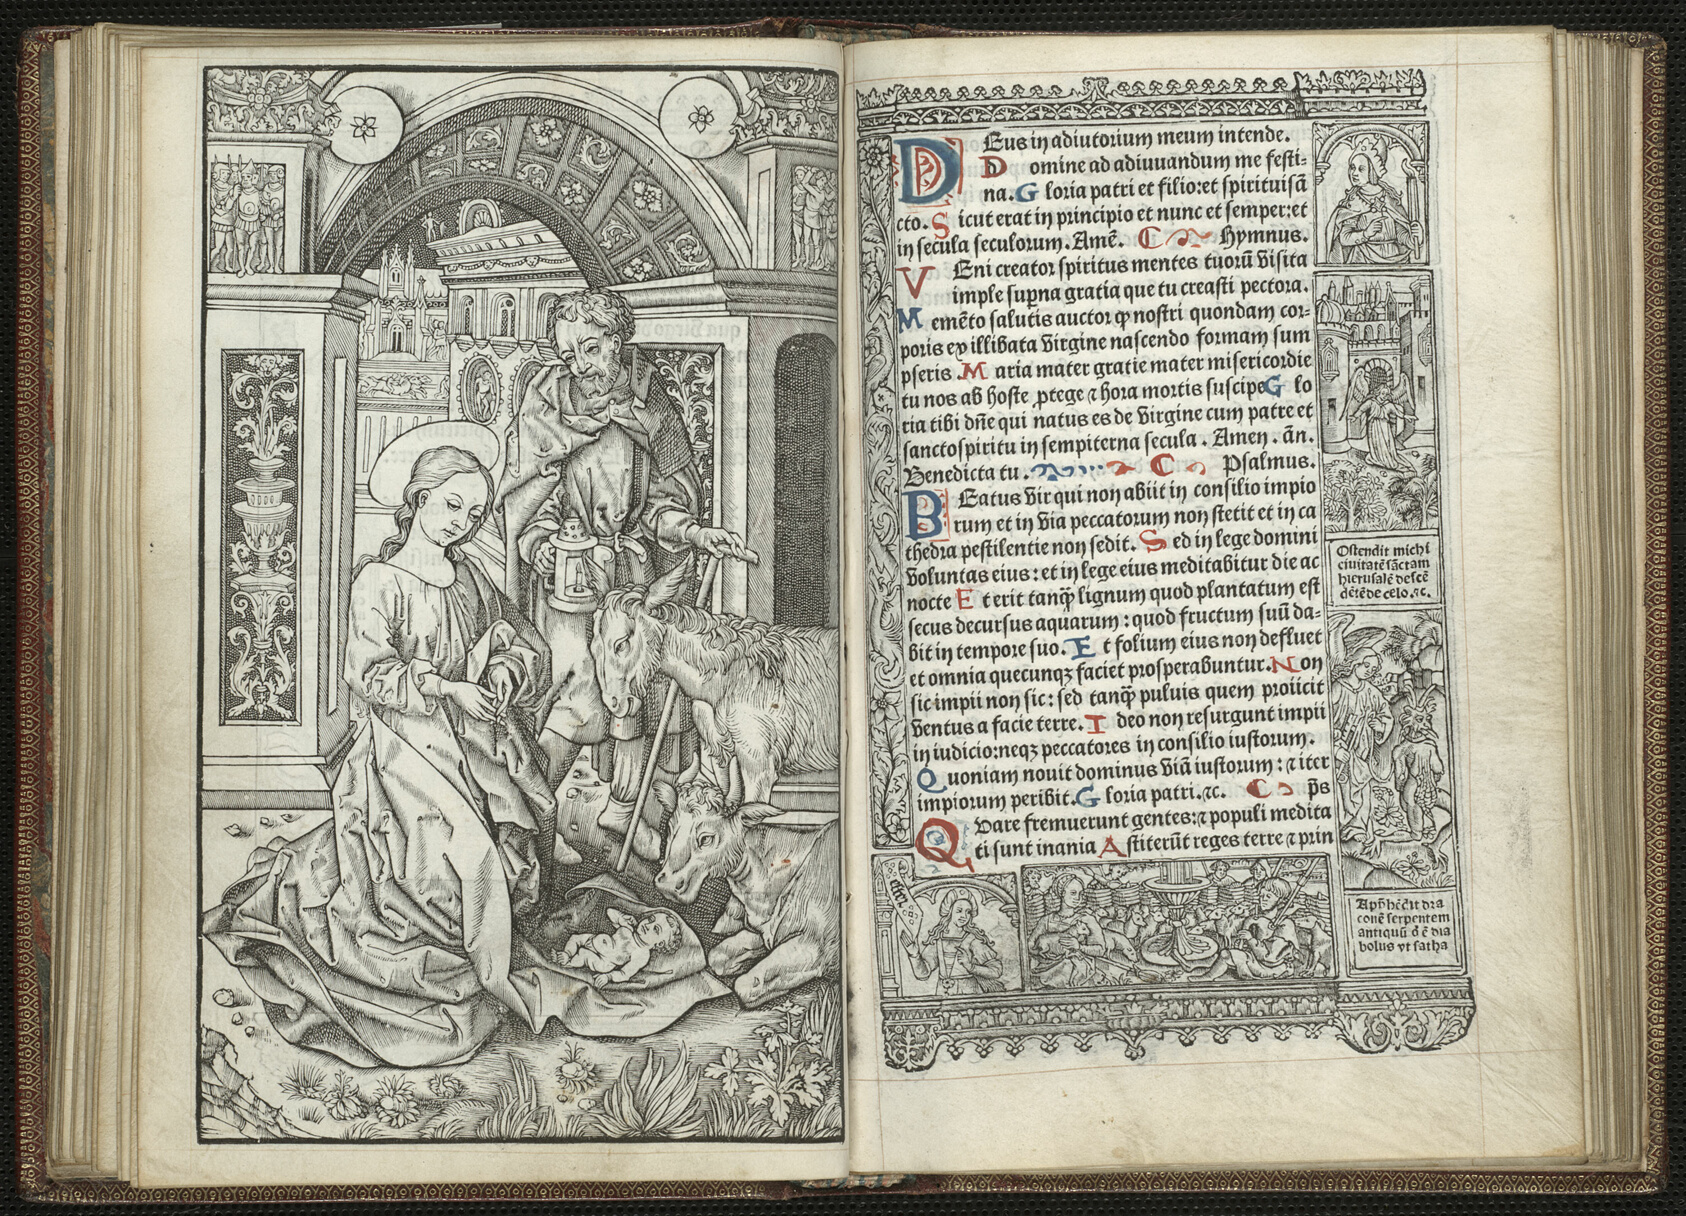 DEus in adiutorium meum intende.
Domine ad adiuuandum me festi-
na. Gloria patri et filio: et spirituisā
cto. Sicut erat in principio et nunc et semper: et
in secula seculorum. Amē. C Hymnus.
VEni creator spiritus mentes tuorū visita
imple suꝑna gratia que tu creasti pectora.
Memēto salutis auctor ꝙ nostri quondam cor-
poris ex illibata virgine nascendo formam sum
pseris. Maria mater gratie mater misericordie
tu nos ab hoste ꝓtege ⁊ hora mortis suscipe Glo
ria tibi dn̄e qui natus es de virgine cum patre et
sanctospiritu in sempiterna secula. Amen. ān.
Benedicta tu. C Psalmus.
BEatus vir qui non abiit in consilio impio
rum et in via peccatorum non stetit et in ca
thedra pestilentie non sedit. Sed in lege domini
voluntas eius: et in lege eius meditabitur die ac
nocte Et erit tanꝙ̄ lignum quod plantatum est
secus decursus aquarum: quod fructum suū da-
bit in tempore suo. Et folium eius non defluet
et omnia quecunqꝫ faciet prosperabuntur. Non
sic impii non sic: sed tanꝙ̄ puluis quem proiicit
ventus a facie terre. Ideo non resurgunt impii
in iudicio: neqꝫ peccatores in consilio iustorum.
Quoniam nouit dominus viā iustorum: ⁊ iter
impiorum peribit. Gloria patri. ⁊c. C p̄s
QVare fremuerunt gentes: ⁊ populi medita
ti sunt inania Astiterūt reges terre ⁊ prin
Ostendit michi
ciuitatē sāctam
hierusalē descē
dētē de celo. ⁊c.
Apꝑhēdit dra
conē serpentem
antiquū ꝙ ē dia
bolus vt satha